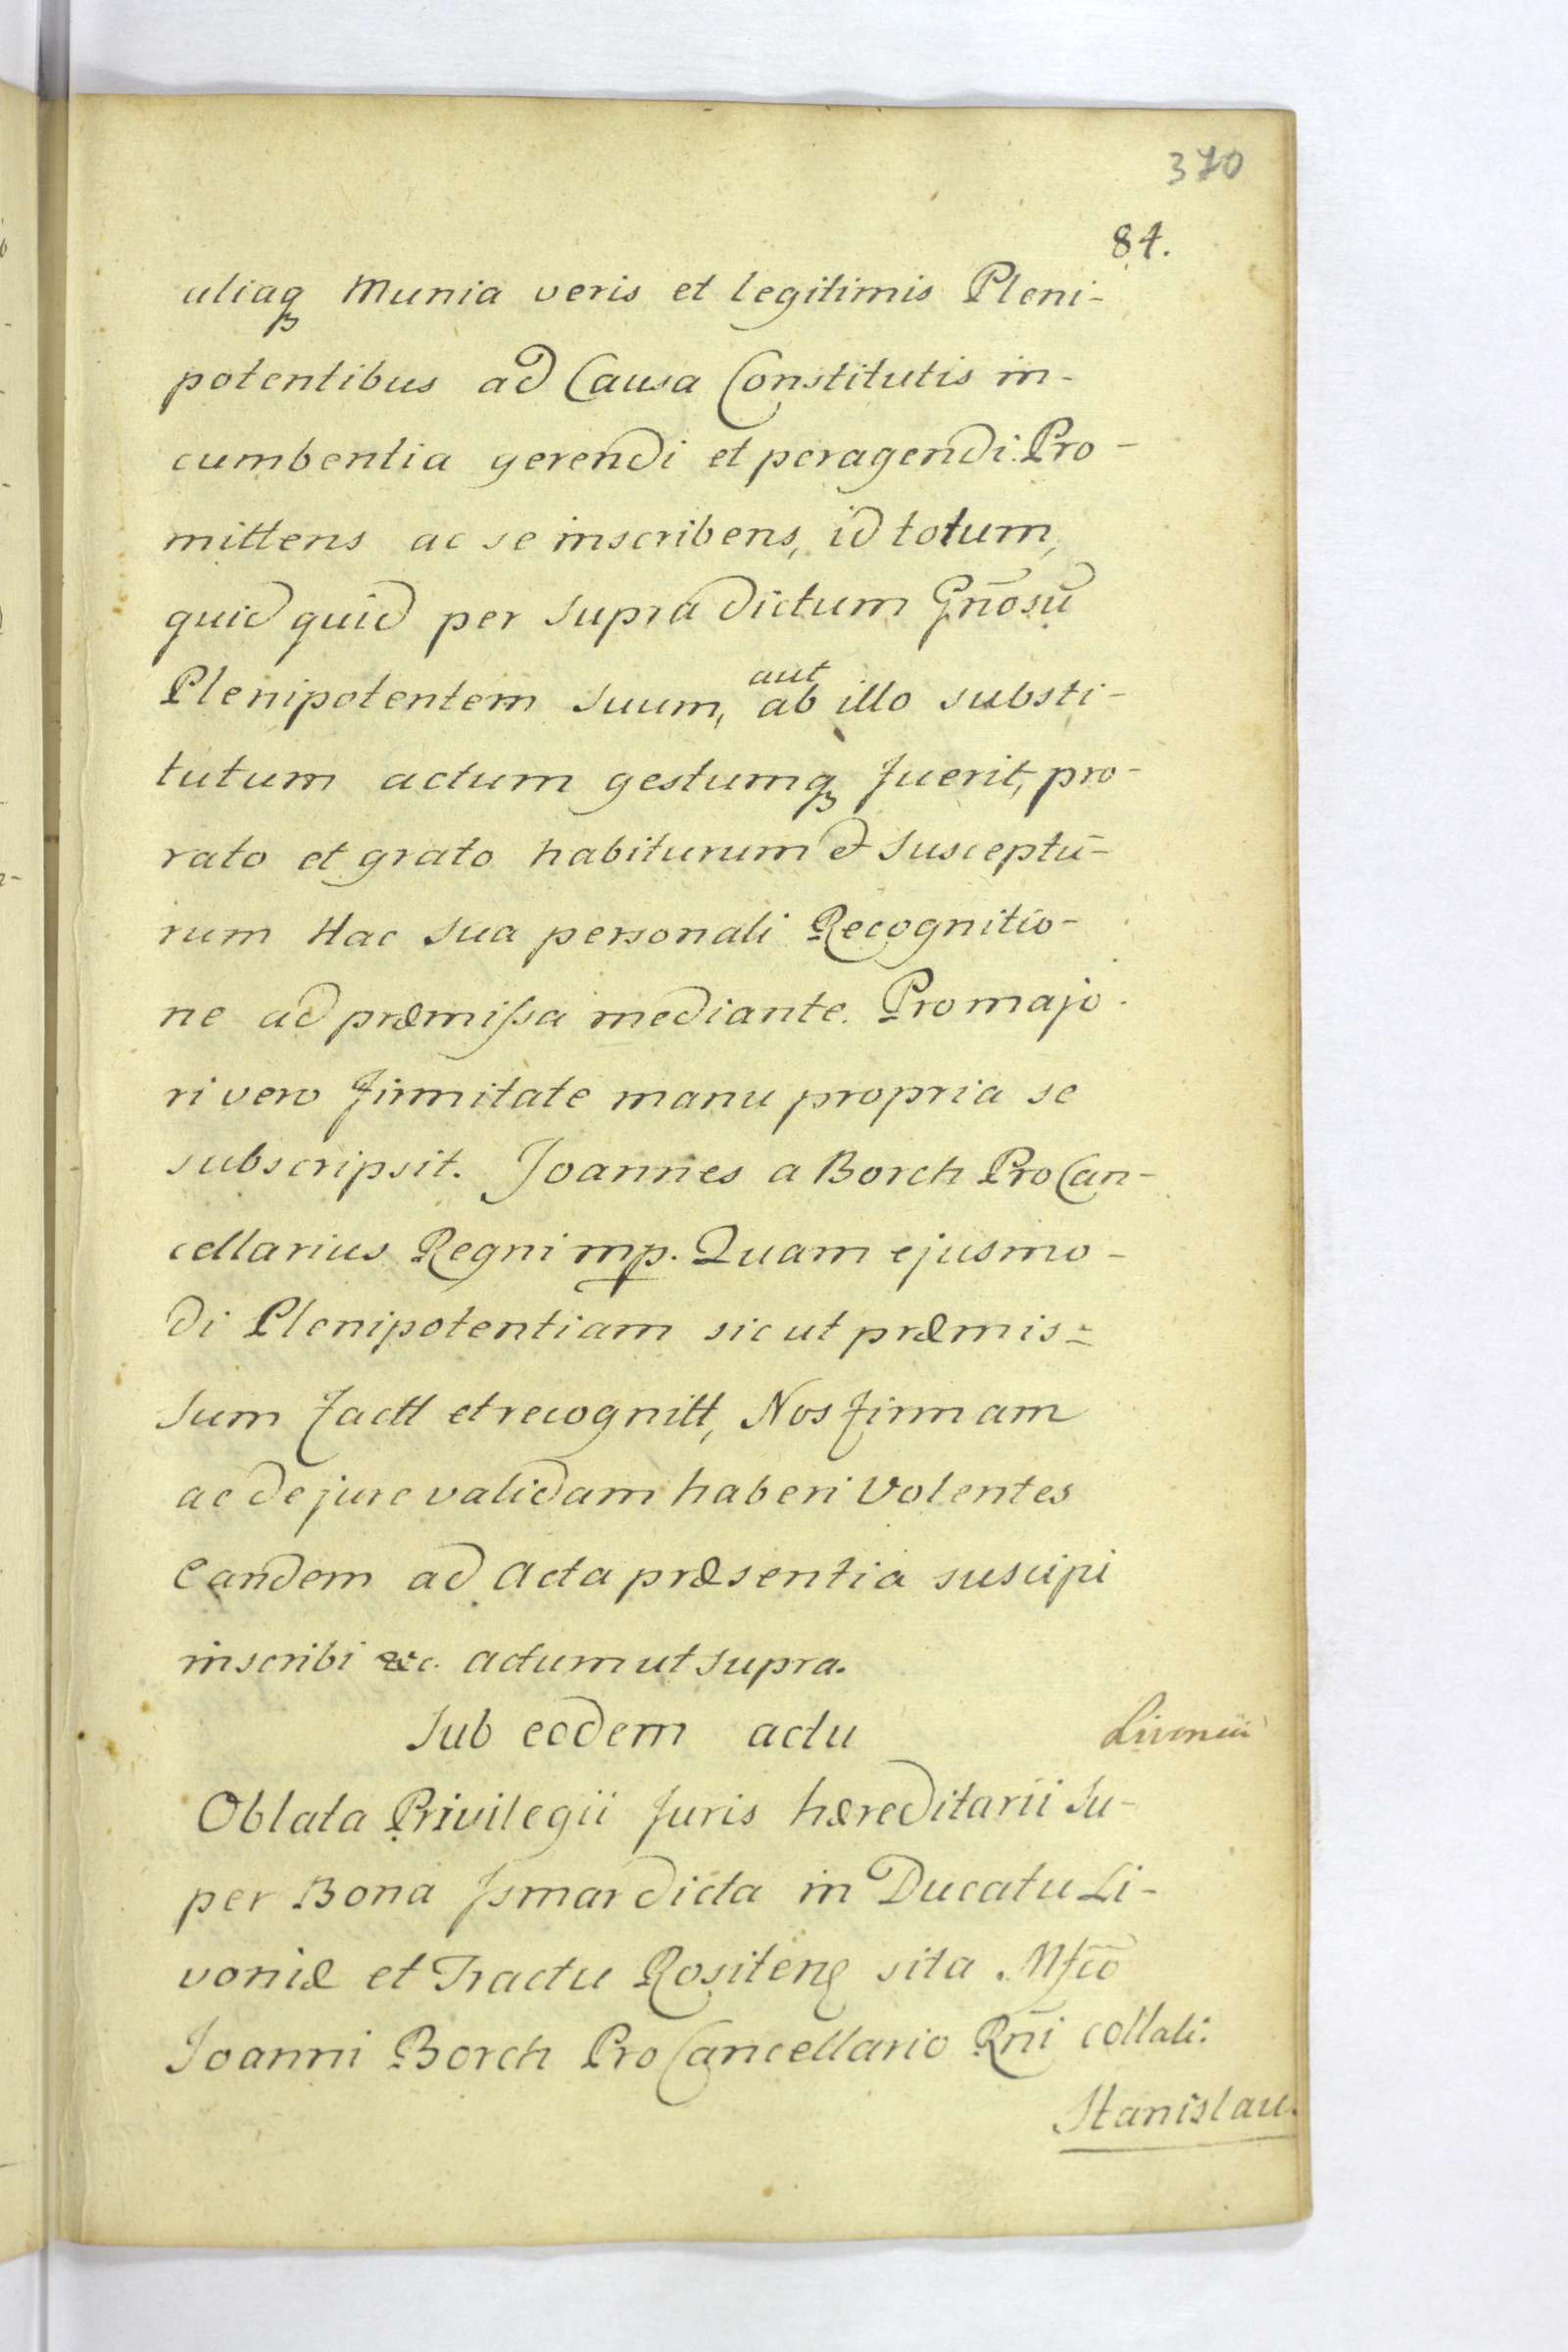 370
84.
aliaqꝫ Munia veris et legitimis Pleni-
potentibus ad Causa Constitutis in-
cumbentia gerendi et peragendi. Pro-
mittens ac se inscribens, id totum,
quid quid per supra dictum Gn̄osū
Plenipotentem suum, aut ab illo substi-
tutum actum gestumqꝫ fuerit, pro-
rato et grato habiturum & susceptū-
rum Hac sua personali Recognitio-
ne ad præmissa mediante. Pro majo-
ri vero firmitate manu propria se
subscripsit. Joannes a Borch ProCan-
cellarius Regni mp. Quam ejusmo-
di Plenipotentiam sic ut præmis=
sum factt et recognitt, Nos firmam
ac de jure validam haberi Volentes
Eandem ad Acta præsentia suscipi
inscribi &c. Actum ut supra.
Sub eodem actu
Oblata Privilegii Juris hæreditarii su-
per Bona Ismar dicta in Ducatu Li-
voniæ et Tractu Rositenę sita Mfco
Joanni Borch ProCancellario Rn̄i collati.
Stanislau.